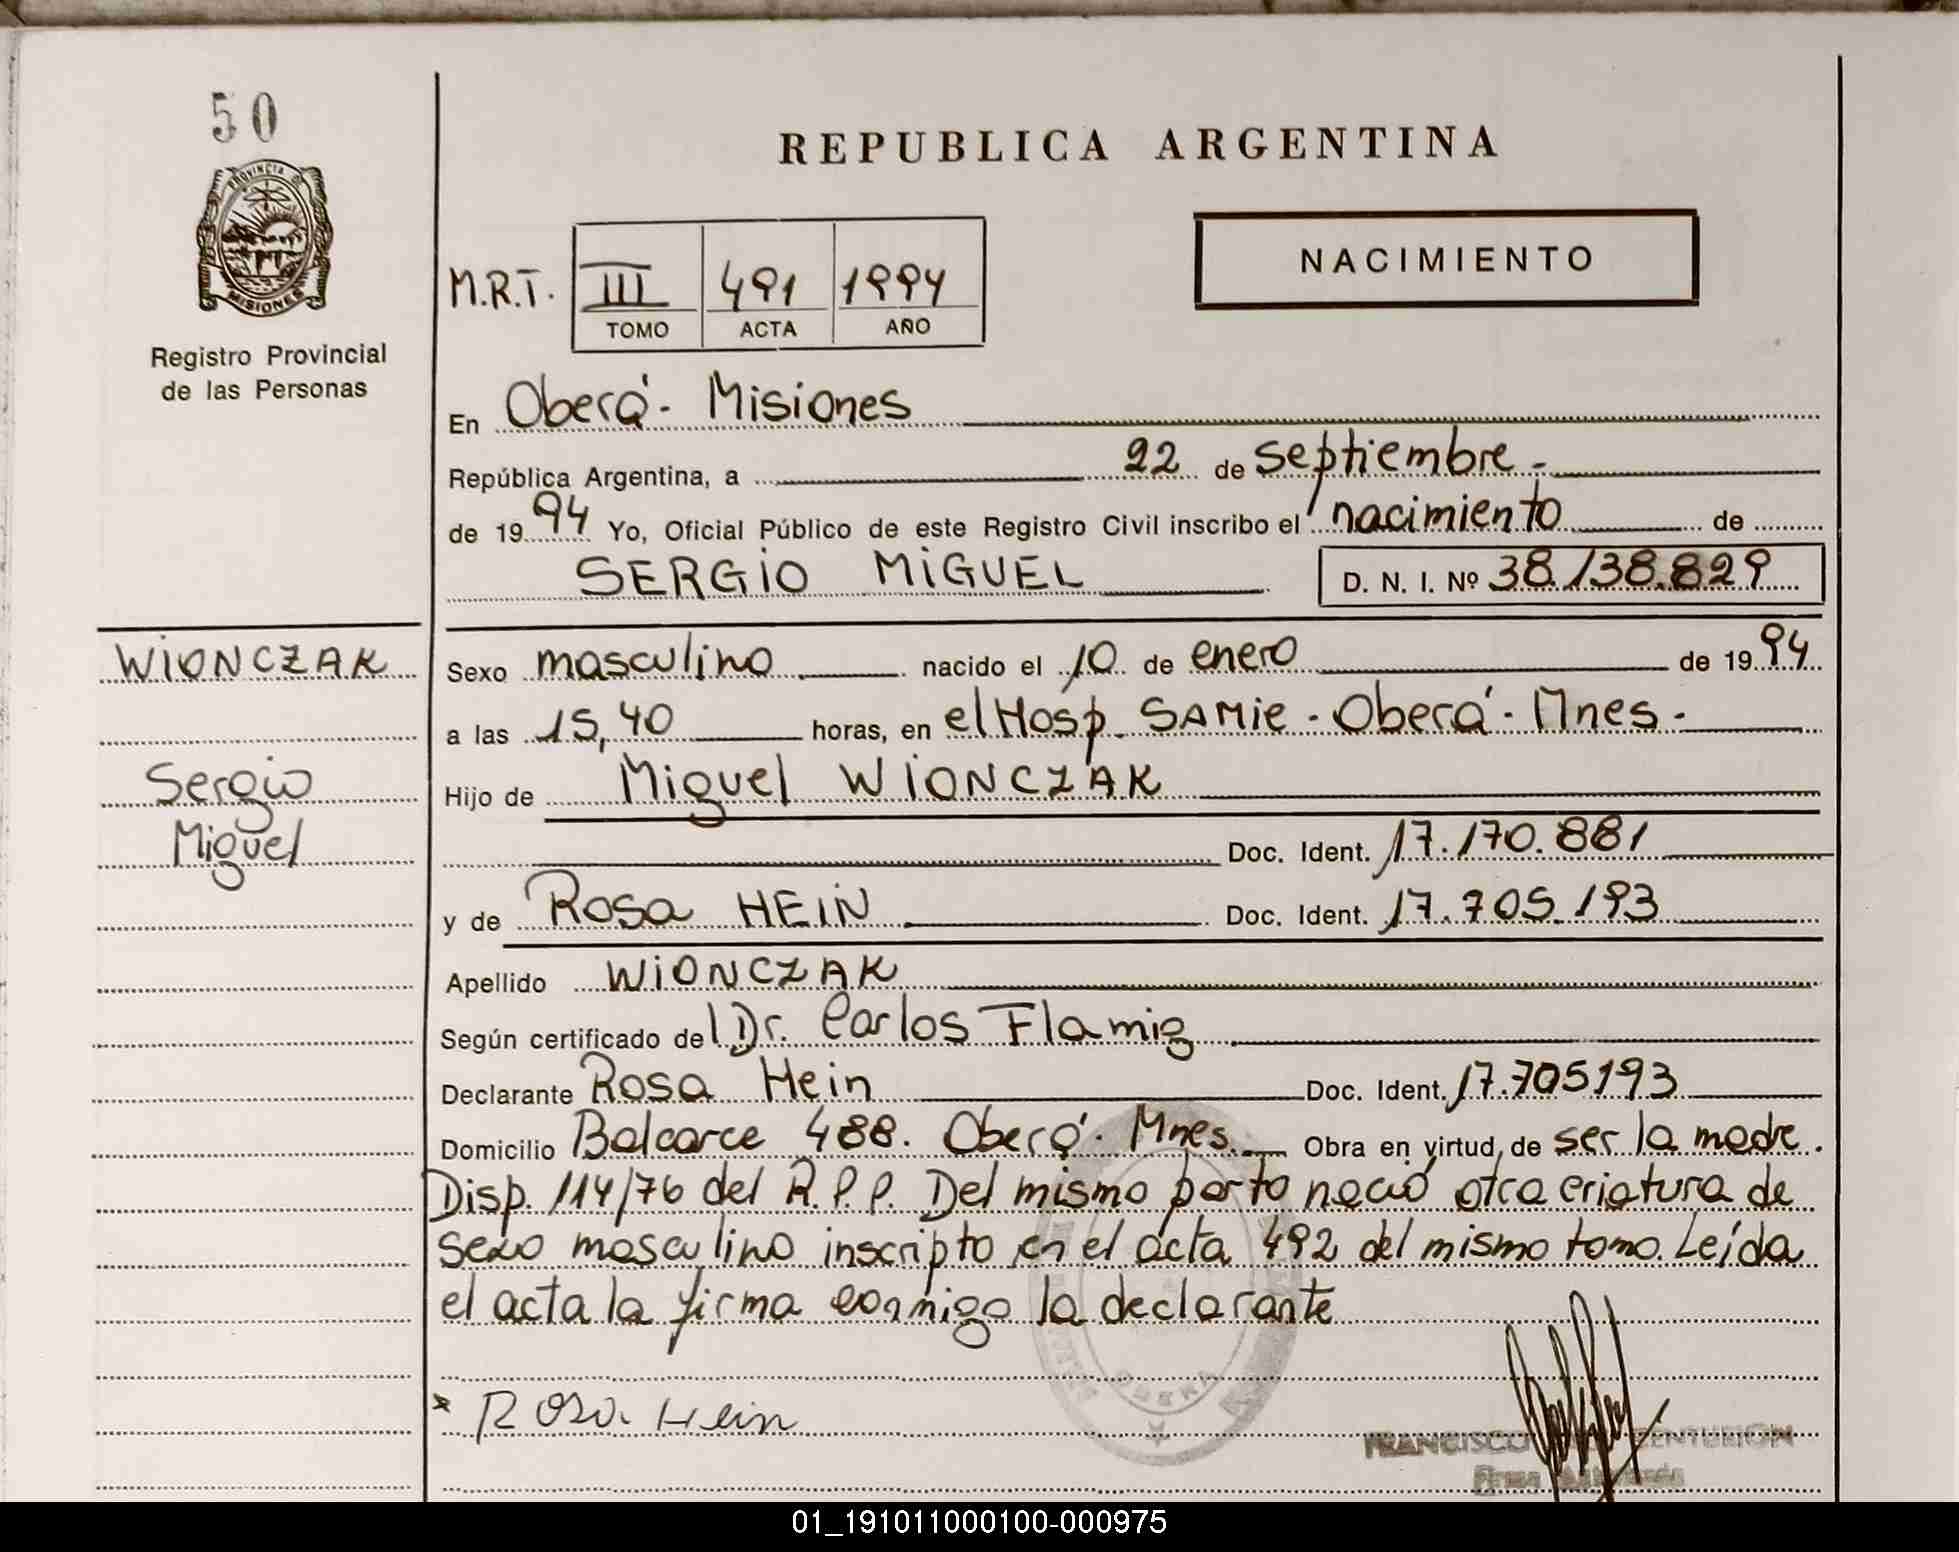 50
REPUBLICA ARGENTINA
PROVINCIA DE
MISIONES
Registro Provincial
de las Personas
M.R.T. III 491 1994
TOMO ACTA AÑO
NACIMIENTO
En Oberá - Misiones
República Argentina, a 22 de septiembre -
de 1994 Yo, Oficial Público de este Registro Civil inscribo el nacimiento de
SERGIO MIGUEL D. N. I. Nº 38.138.829
WIONCZAK
Sergio
Miguel
Sexo masculino nacido el 10 de enero de 1994
a las 15,40 horas, en el Hosp. SAMie - Oberá - Mnes -
Hijo de Miguel WIONCZAK
Doc. Ident. 17.170.881
y de Rosa HEIN Doc. Ident. 17.705.193
Apellido WIONCZAK
Según certificado del Dr. Carlos Flamig
Declarante Rosa Hein Doc. Ident. 17.705193
Domicilio Balcarce 488. Oberá. Mnes. Obra en virtud, de ser la madre.
Disp. 114/76 del R.P.P. Del mismo parto nació otra criatura de
sexo masculino inscripto en el acta 492 del mismo tomo. Leída
el acta la firma conmigo la declarante
OBERA
* Rosa Hein
FRANCISCO CENTURION
01_191011000100-000975